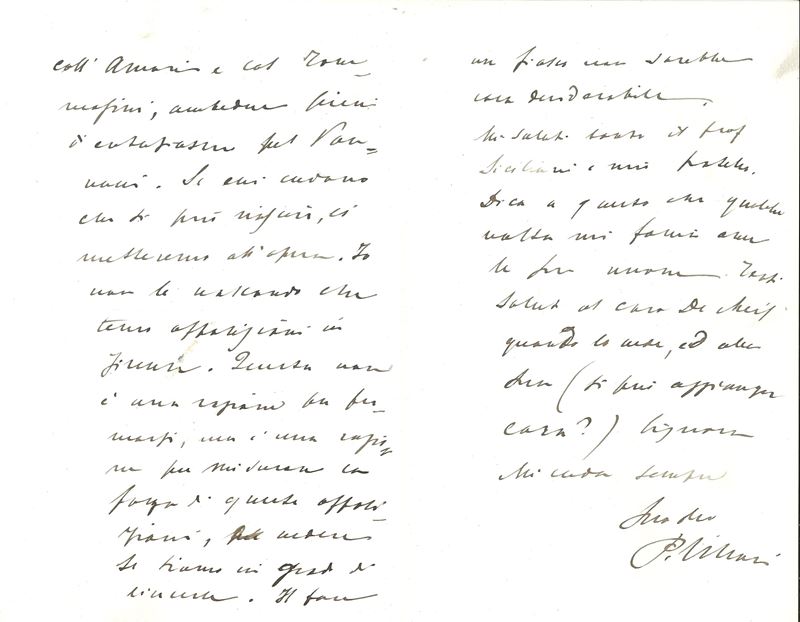 coll' Amari e col Tom-
masini, ambedue pieni
d'entusiasmo pel Van-
nucci. Se essi credono
che si può riuscire, ci
metteremo all'opera. Io
non le nascondo che
temo opposizioni in
Firenze. Questa non
è una ragione per fer-
marsi, ma è una ragio-
ne per misurare la
forza di queste opposi-
zioni, vedere
se siamo in grado di
vincerle. Il fare
un fiasco non sarebbe
cosa desiderabile.
Mi saluti tanto il prof
Siciliani e mio fratello.
Dica a questo che qualche
volta mi faccia avere
le sue nuove. Tanti
saluti al caro De Meis
quando lo vede, ed alla
sua (si può aggiungere
cara?) Signora
Mi creda sempre
Suo dev
P. Villari